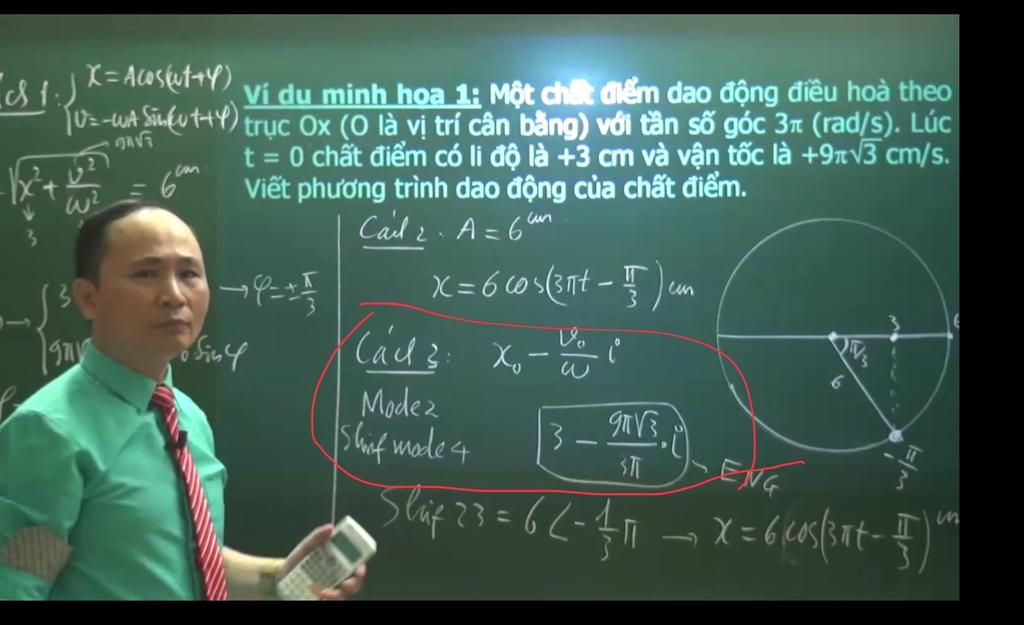 Ví dụ minh họa 1: Một chất điểm dao động điều hoà theo
trục Ox (O là vị trí cân bằng) với tần số góc 3π (rad/s). Lúc
t = 0 chất điểm có li độ là +3 cm và vận tốc là +9π√3 cm/s.
Viết phương trình dao động của chất điểm.
1:
x = Acos(ωt+φ)
v = -ωA Sin(ωt+φ)
9π√3
√x² + v²/ω² = 6 cm
3
3
→ φ = ± π/3
9π√3
Sinφ
Cách 2. A = 6 cm
x = 6 cos(3πt - π/3) cm
Cách 3: x₀ - v₀/ω i
Mode 2
Shift mode 4
3 - 9π√3/3π . i
ENG
Shift 23 = 6 < -1/3 π → x = 6 cos(3πt - π/3) cm
3
6
π/3
6
-π/3